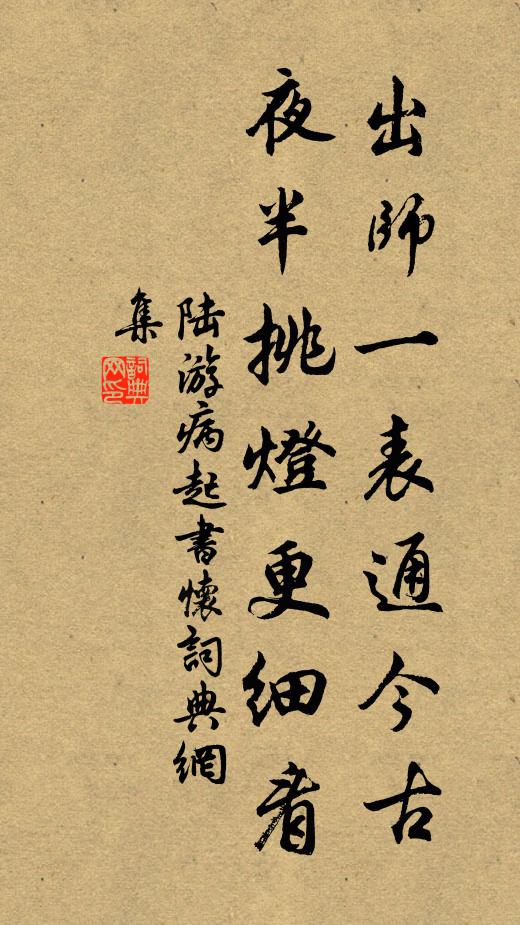 出師一表通今古
夜半挑燈更細看
陆游病起書懷詞典網
集
詞典
网印